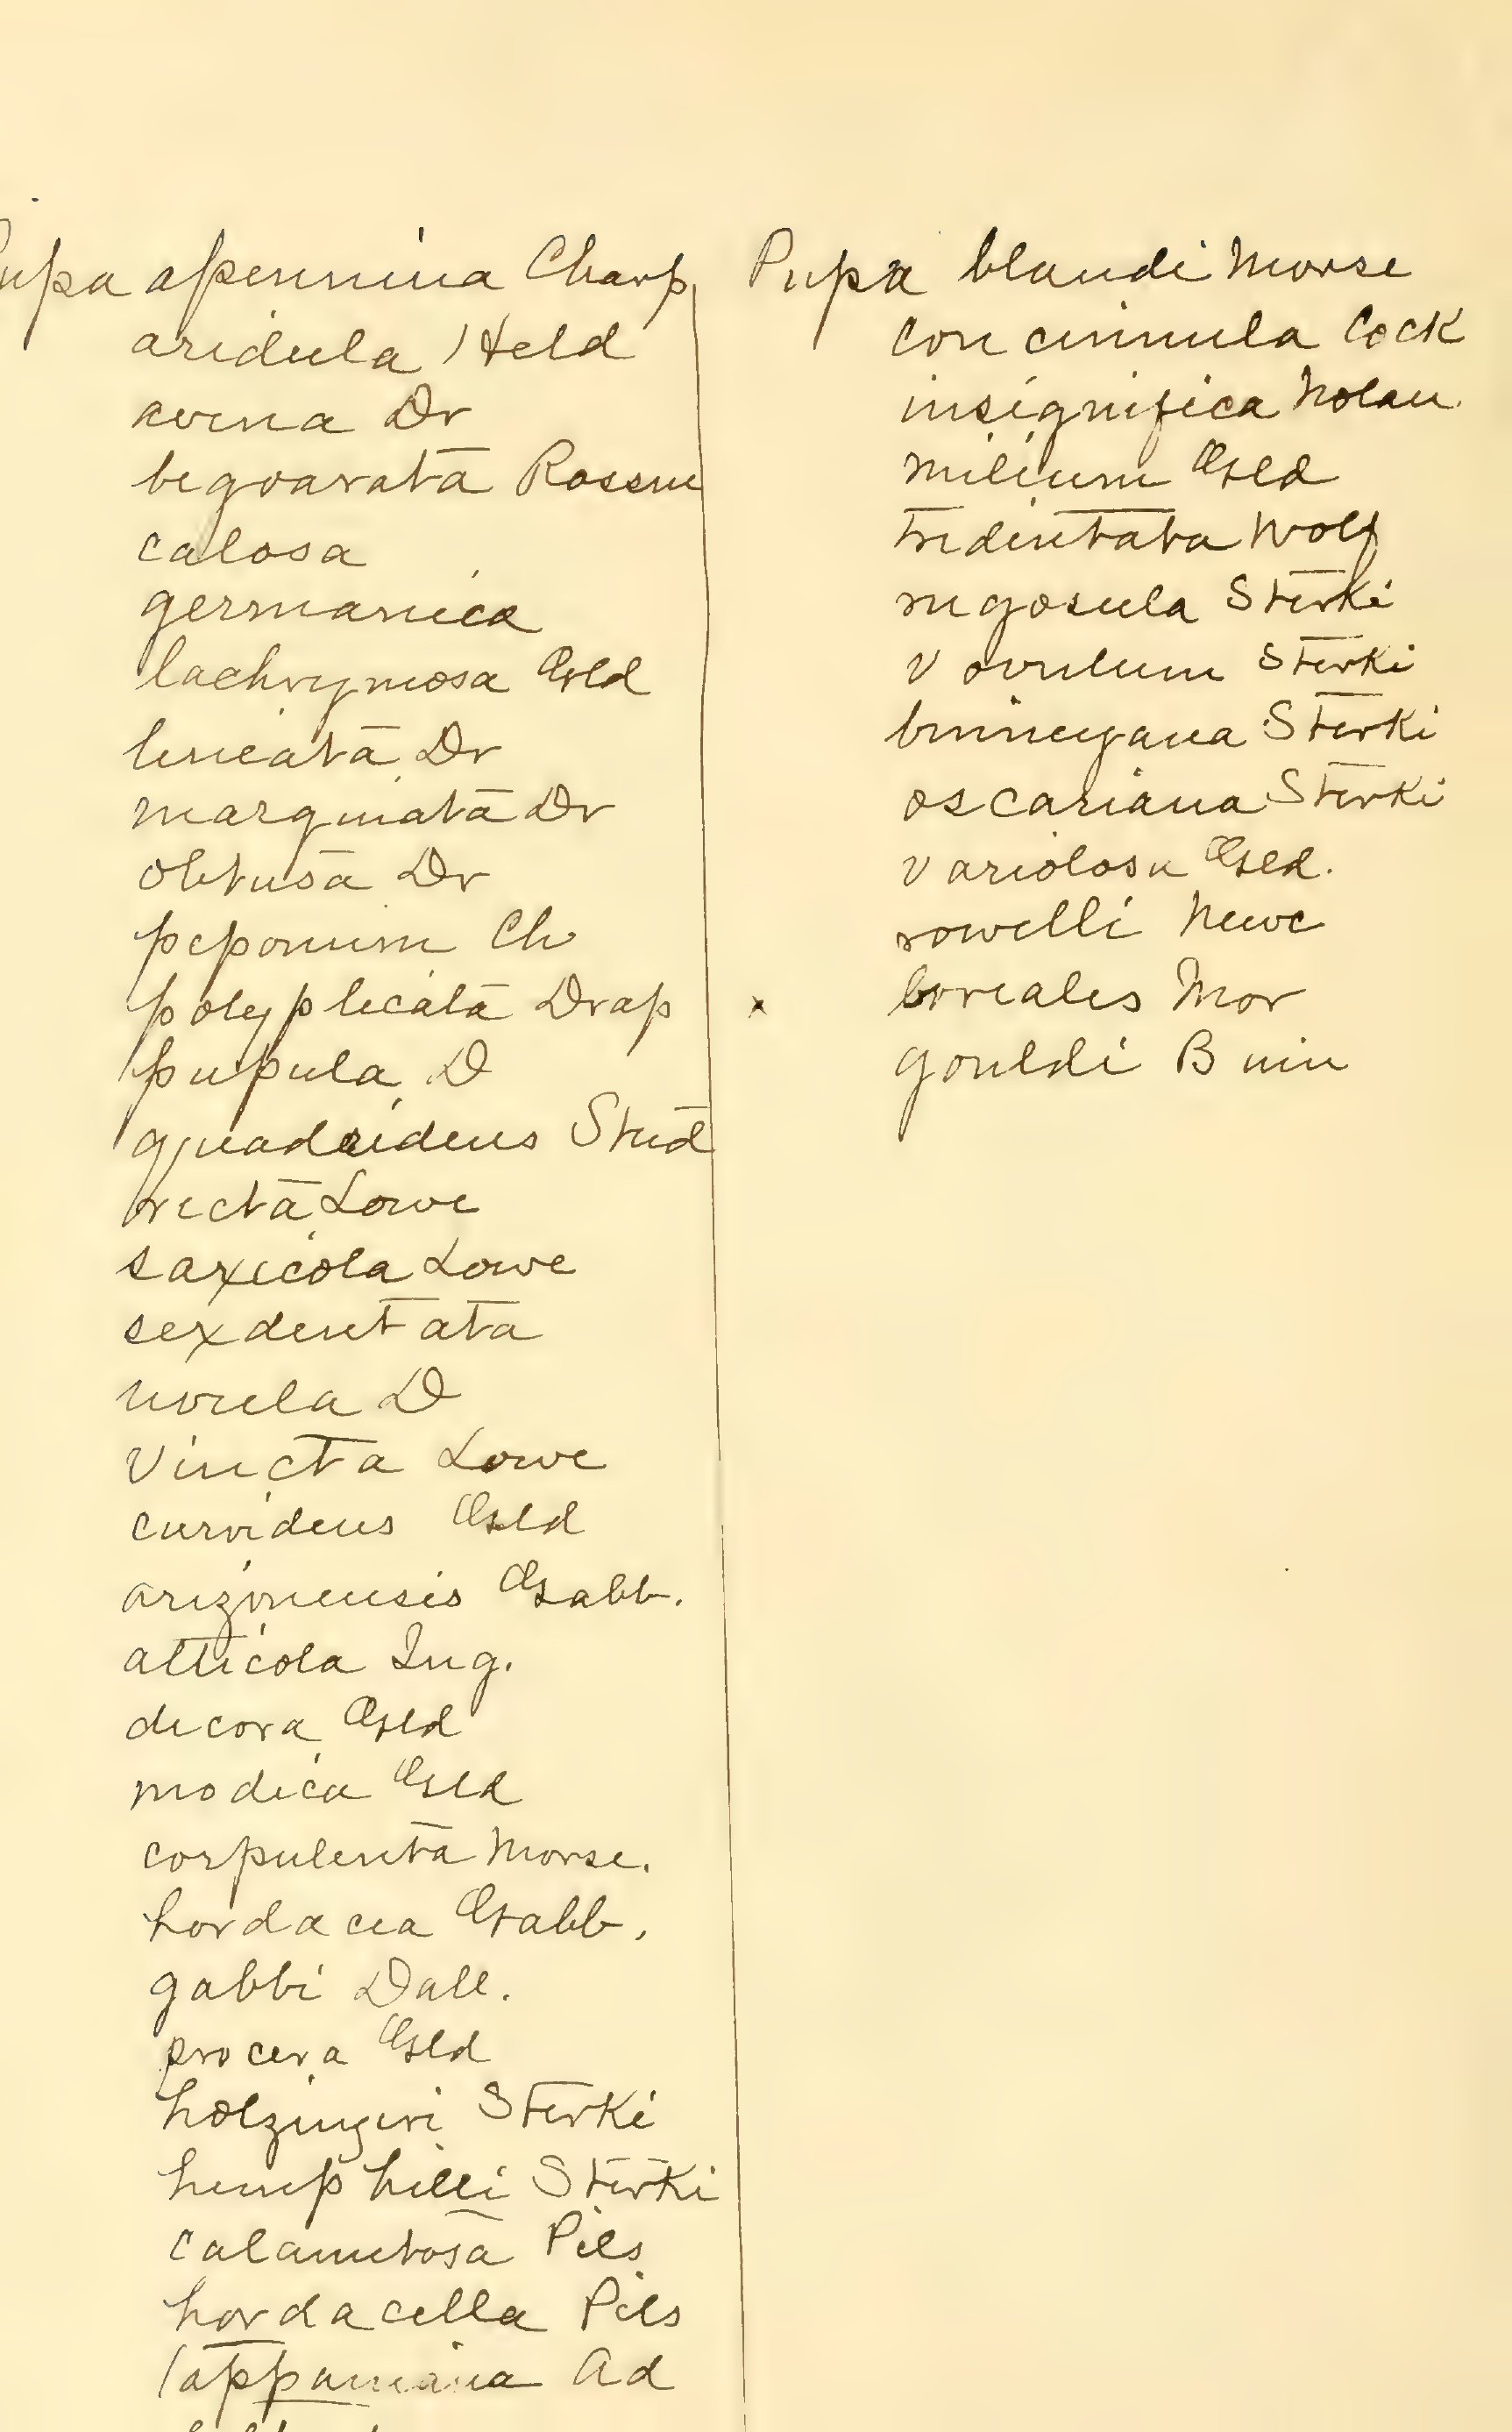 Pupa apennina Charp
aridula Held
avena Dr
begoarata Rossm
calosa
germanica
lachrymosa Gld
lineata Dr
marginata Dr
obtusa Dr
peponum Ch
polyplicata Drap
pupula D
quadridens Stud
recta Lowe
saxicola Lowe
sexdentata
D
vincta Lowe
curvidens Gld
arizonensis Gabb.
alticola Ing.
decora Gld
modica Gld
corpulenta Morse.
hordacea Gabb.
gabbi Dall.
procera Gld
holzingeri Sterki
hemphilli Sterki
calamitosa Pils
hordacella Pils
tappaniana Ad
Pupa blandi Morse
concinnula Cock
insignifica Nolan
milium Gld
tridentata Wolf
rugosula Sterki
v ovulum Sterki
binneyana Sterki
oscariana Sterki
variolosa Gld.
rowelli Newc
x borealis Mor
gouldi Binn